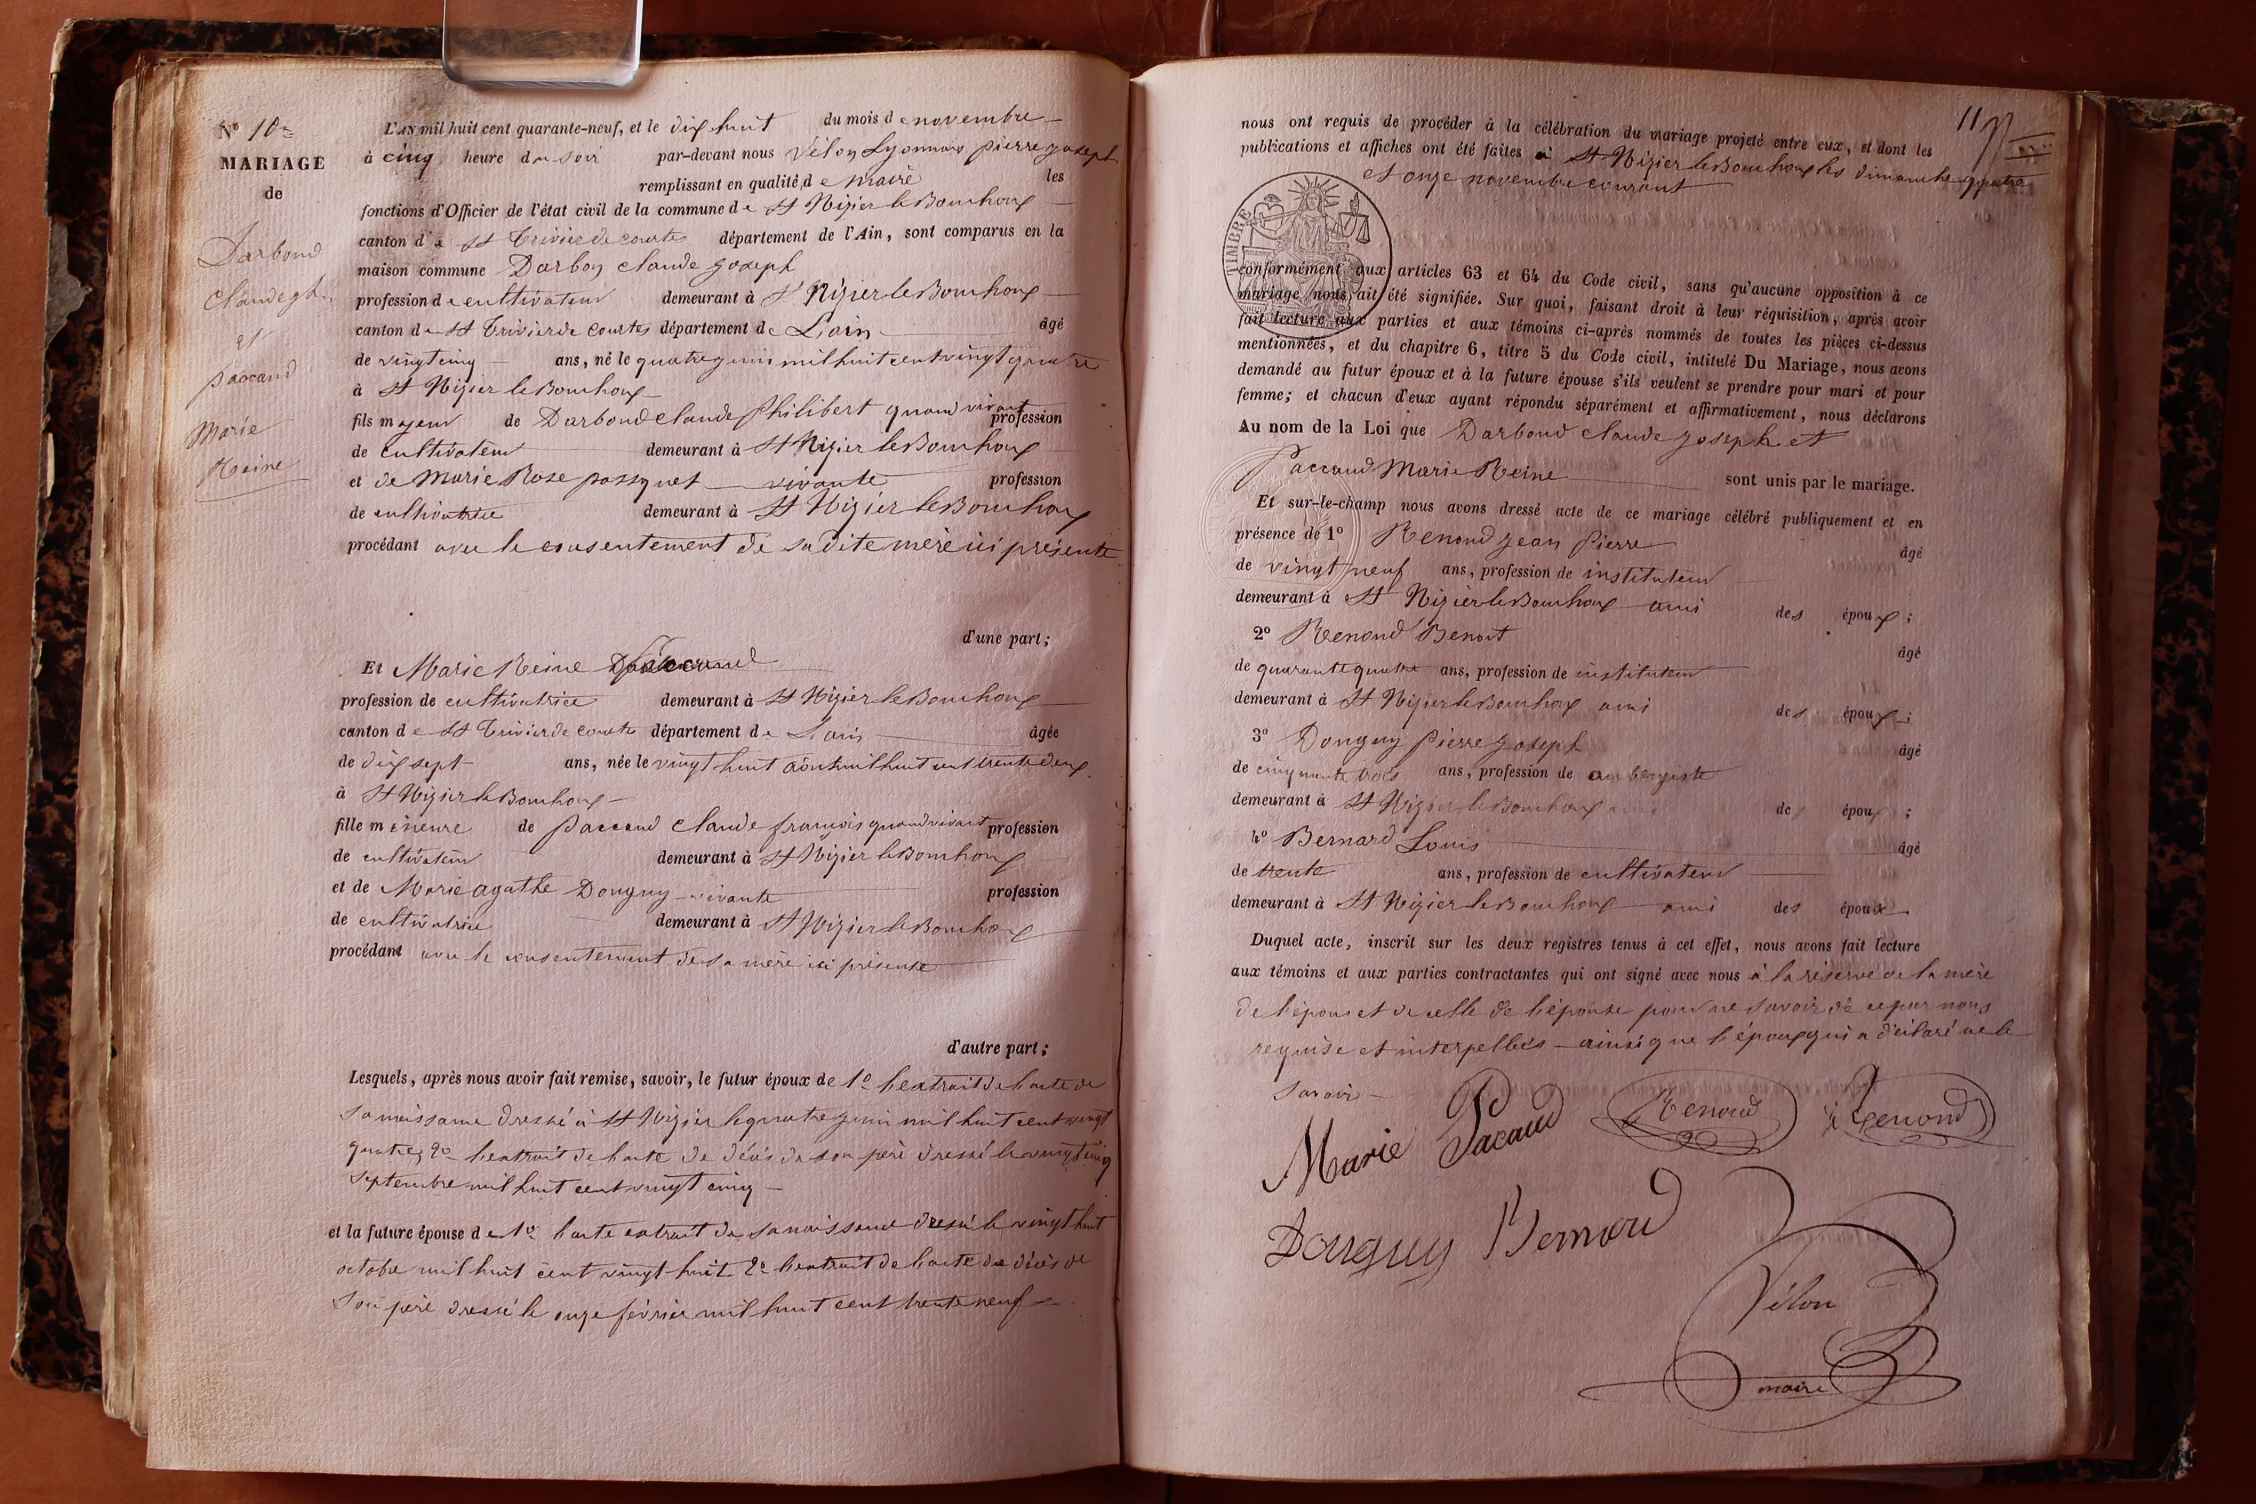 N° 10
MARIAGE
de
Darbond
Claude
et
paccand
Marie
Reine
L'AN mil huit cent quarante-neuf, et le dix huit du mois de novembre
à cinq heure du soir par-devant nous Vélon Lyonnais pierre joseph
remplissant en qualité de maire les
fonctions d'Officier de l'état civil de la commune de St Nizier le Bouchoux
canton de St Trivier de courtes département de l'Ain, sont comparus en la
maison commune Darbon claude joseph
profession de cultivateur demeurant à St Nizier le Bouchoux
canton de St Trivier de courtes département de L'ain âgé
de vingt cinq ans, né le quatre juin mil huit cent vingt quatre
à St Nizier le Bouchoux
fils majeur de Darbond claude Philibert quand vivant profession
de cultivateur demeurant à St Nizier le Bouchoux
et de Marie Rose passquet vivante profession
de cultivatrice demeurant à St Nizier le Bouchoux
procédant avec le consentement de sa dite mère ici présente
d'une part;
Et Marie Reine
profession de cultivatrice demeurant à St Nizier le Bouchoux
canton de St Trivier de courtes département de L'ain âgée
de dix sept ans, née le vingt huit août mil huit cent trente deux
à St Nizier le Bouchoux
fille mineure de paccand claude françois quand vivant profession
de cultivateur demeurant à St Nizier le Bouchoux
et de Marie agathe Donguy vivante profession
de cultivatrice demeurant à St Nizier le Bouchoux
procédant avec le consentement de sa mère ici présente
d'autre part;
Lesquels, après nous avoir fait remise, savoir, le futur époux de 1° l'extrait de l'acte de
sa naissance dressé à St Nizier le quatre juin mil huit cent vingt
quatre, 2° l'extrait de l'acte de décès de son père dressé le vingt cinq
septembre mil huit cent vingt cinq
et la future épouse de 1° l'acte extrait de sa naissance dressé le vingt huit
octobre mil huit cent vingt huit 2° l'extrait de l'acte de décès de
son père dressé le onze février mil huit cent trente neuf
11
nous ont requis de procéder à la célébration du mariage projeté entre eux, et dont les
publications et affiches ont été faites à St Nizier le Bouchoux les dimanche quatre
et onze novembre courant
TIMBRE
conformément aux articles 63 et 64 du Code civil, sans qu'aucune opposition à ce
mariage nous ait été signifiée. Sur quoi, faisant droit à leur réquisition, après avoir
fait lecture aux parties et aux témoins ci-après nommés de toutes les pièces ci-dessus
mentionnées, et du chapitre 6, titre 5 du Code civil, intitulé Du Mariage, nous avons
demandé au futur époux et à la future épouse s'ils veulent se prendre pour mari et pour
femme; et chacun d'eux ayant répondu séparément et affirmativement, nous déclarons
Au nom de la Loi que Darbond claude joseph et
Paccaud Marie Reine sont unis par le mariage.
Et sur-le-champ nous avons dressé acte de ce mariage célébré publiquement et en
présence de 1° Renoud jean Pierre âgé
de vingt neuf ans, profession de instituteur
demeurant à St Nizier le Bouchoux ami des époux;
2° Renoud Benoit âgé
de quarante quatre ans, profession de instituteur
demeurant à St Nizier le Bouchoux ami des époux;
3° Donguy pierre joseph âgé
de cinquante trois ans, profession de aubergiste
demeurant à St Nizier le Bouchoux ami des époux;
4° Bernard Louis âgé
de trente ans, profession de cultivateur
demeurant à St Nizier le Bouchoux ami des époux
Duquel acte, inscrit sur les deux registres tenus à cet effet, nous avons fait lecture
aux témoins et aux parties contractantes qui ont signé avec nous à la réserve de la mère
de l'époux et de celle de l'épouse pour ne savoir de ce par nous
requise et interpellées ainsi que l'époux qui a déclaré ne le
savoir
Marie Pacaud Renoud Renoud
Donguy Bernard
Vélon
maire